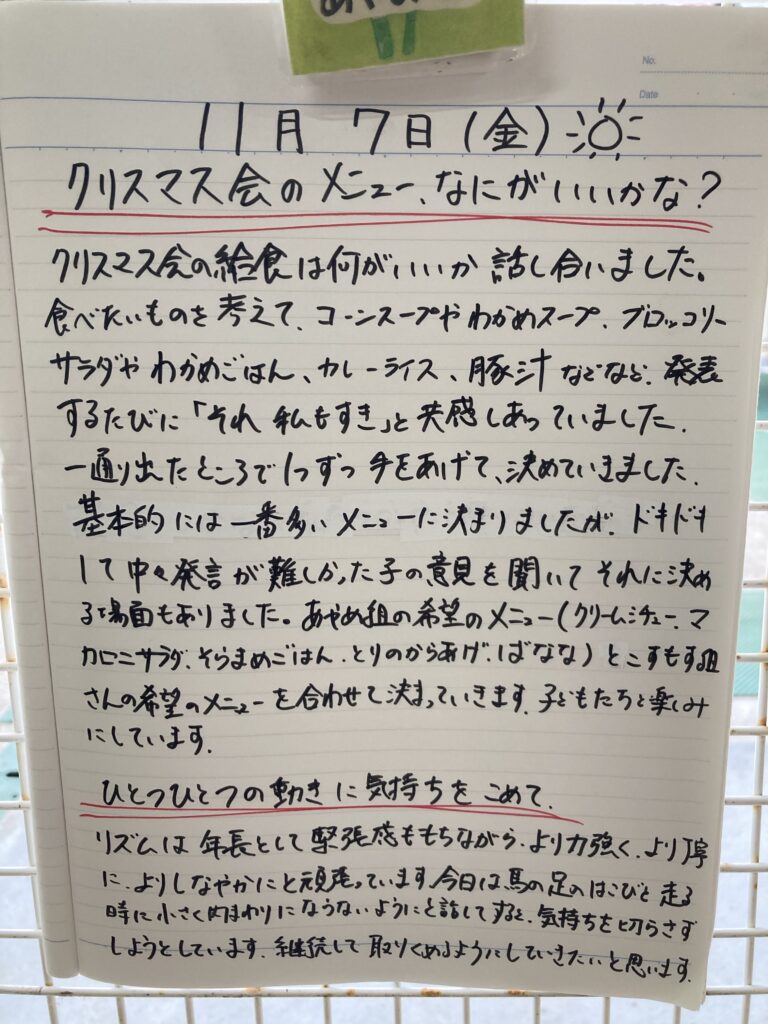 No.
Date
11月 7日(金)
クリスマス会のメニュー、なにがいいかな?
クリスマス会の給食は何がいいか 話し合いました。
食べたいものを考えて、コーンスープや わかめスープ、ブロッコリー
サラダや わかめごはん、カレーライス、豚汁 などなど、発表
するたびに「それ 私もすき」と共感しあっていました。
一通り出たところで1つずつ 手をあげて、決めていきました。
基本的には 一番多いメニューに決まりましたが、ドキドキ
して中々発言が難しかった子の意見を聞いて それに決め
る場面もありました。あやめ組の希望のメニュー(クリームシチュー、マ
カロニサラダ、そらまめごはん、とりのからあげ、ばなな)とこすもす組
さんの希望のメニューを合わせて決まっていきます。子どもたちと楽しみ
にしています。
ひとつひとつの動きに気持ちをこめて。
リズムは 年長として緊張感ももちながら、より力強く、より丁寧
に、よりしなやかにと頑張っています。今日は馬の足のはこびと走る
時に小さく内まわりにならないようにと話してすると、気持ちを切らさず
しようとしています。継続して取りくめるようにしていきたいと思います。